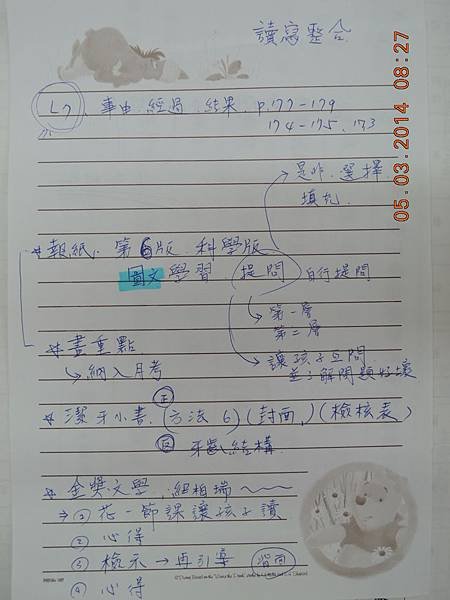 讀寫整合
05.03.2014 08:27
L7、事由、經過、結果 p.177-179
174-175、173
是非、選擇
填充
*報紙、第6版 科學版
圖文學習 提問 自行提問
第一層
第二層
*畫重點
讓孩子互問
並了解問題好壞
→納入月考
正
*潔牙小書、(方法 6)(封面、)(檢核表)
反 牙齒結構
*金獎文學、紐柏瑞~~
⇒①花一節課讓孩子讀
②心得
③檢示→再引導 背面
④心得